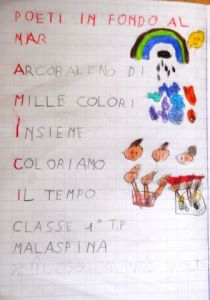 POETI IN FONDO AL
MAR
ARCOBALENO DI
MILLE COLORI
INSIEME
COLORIAMO
IL TEMPO
CLASSE 1ª T.P.
MALASPINA